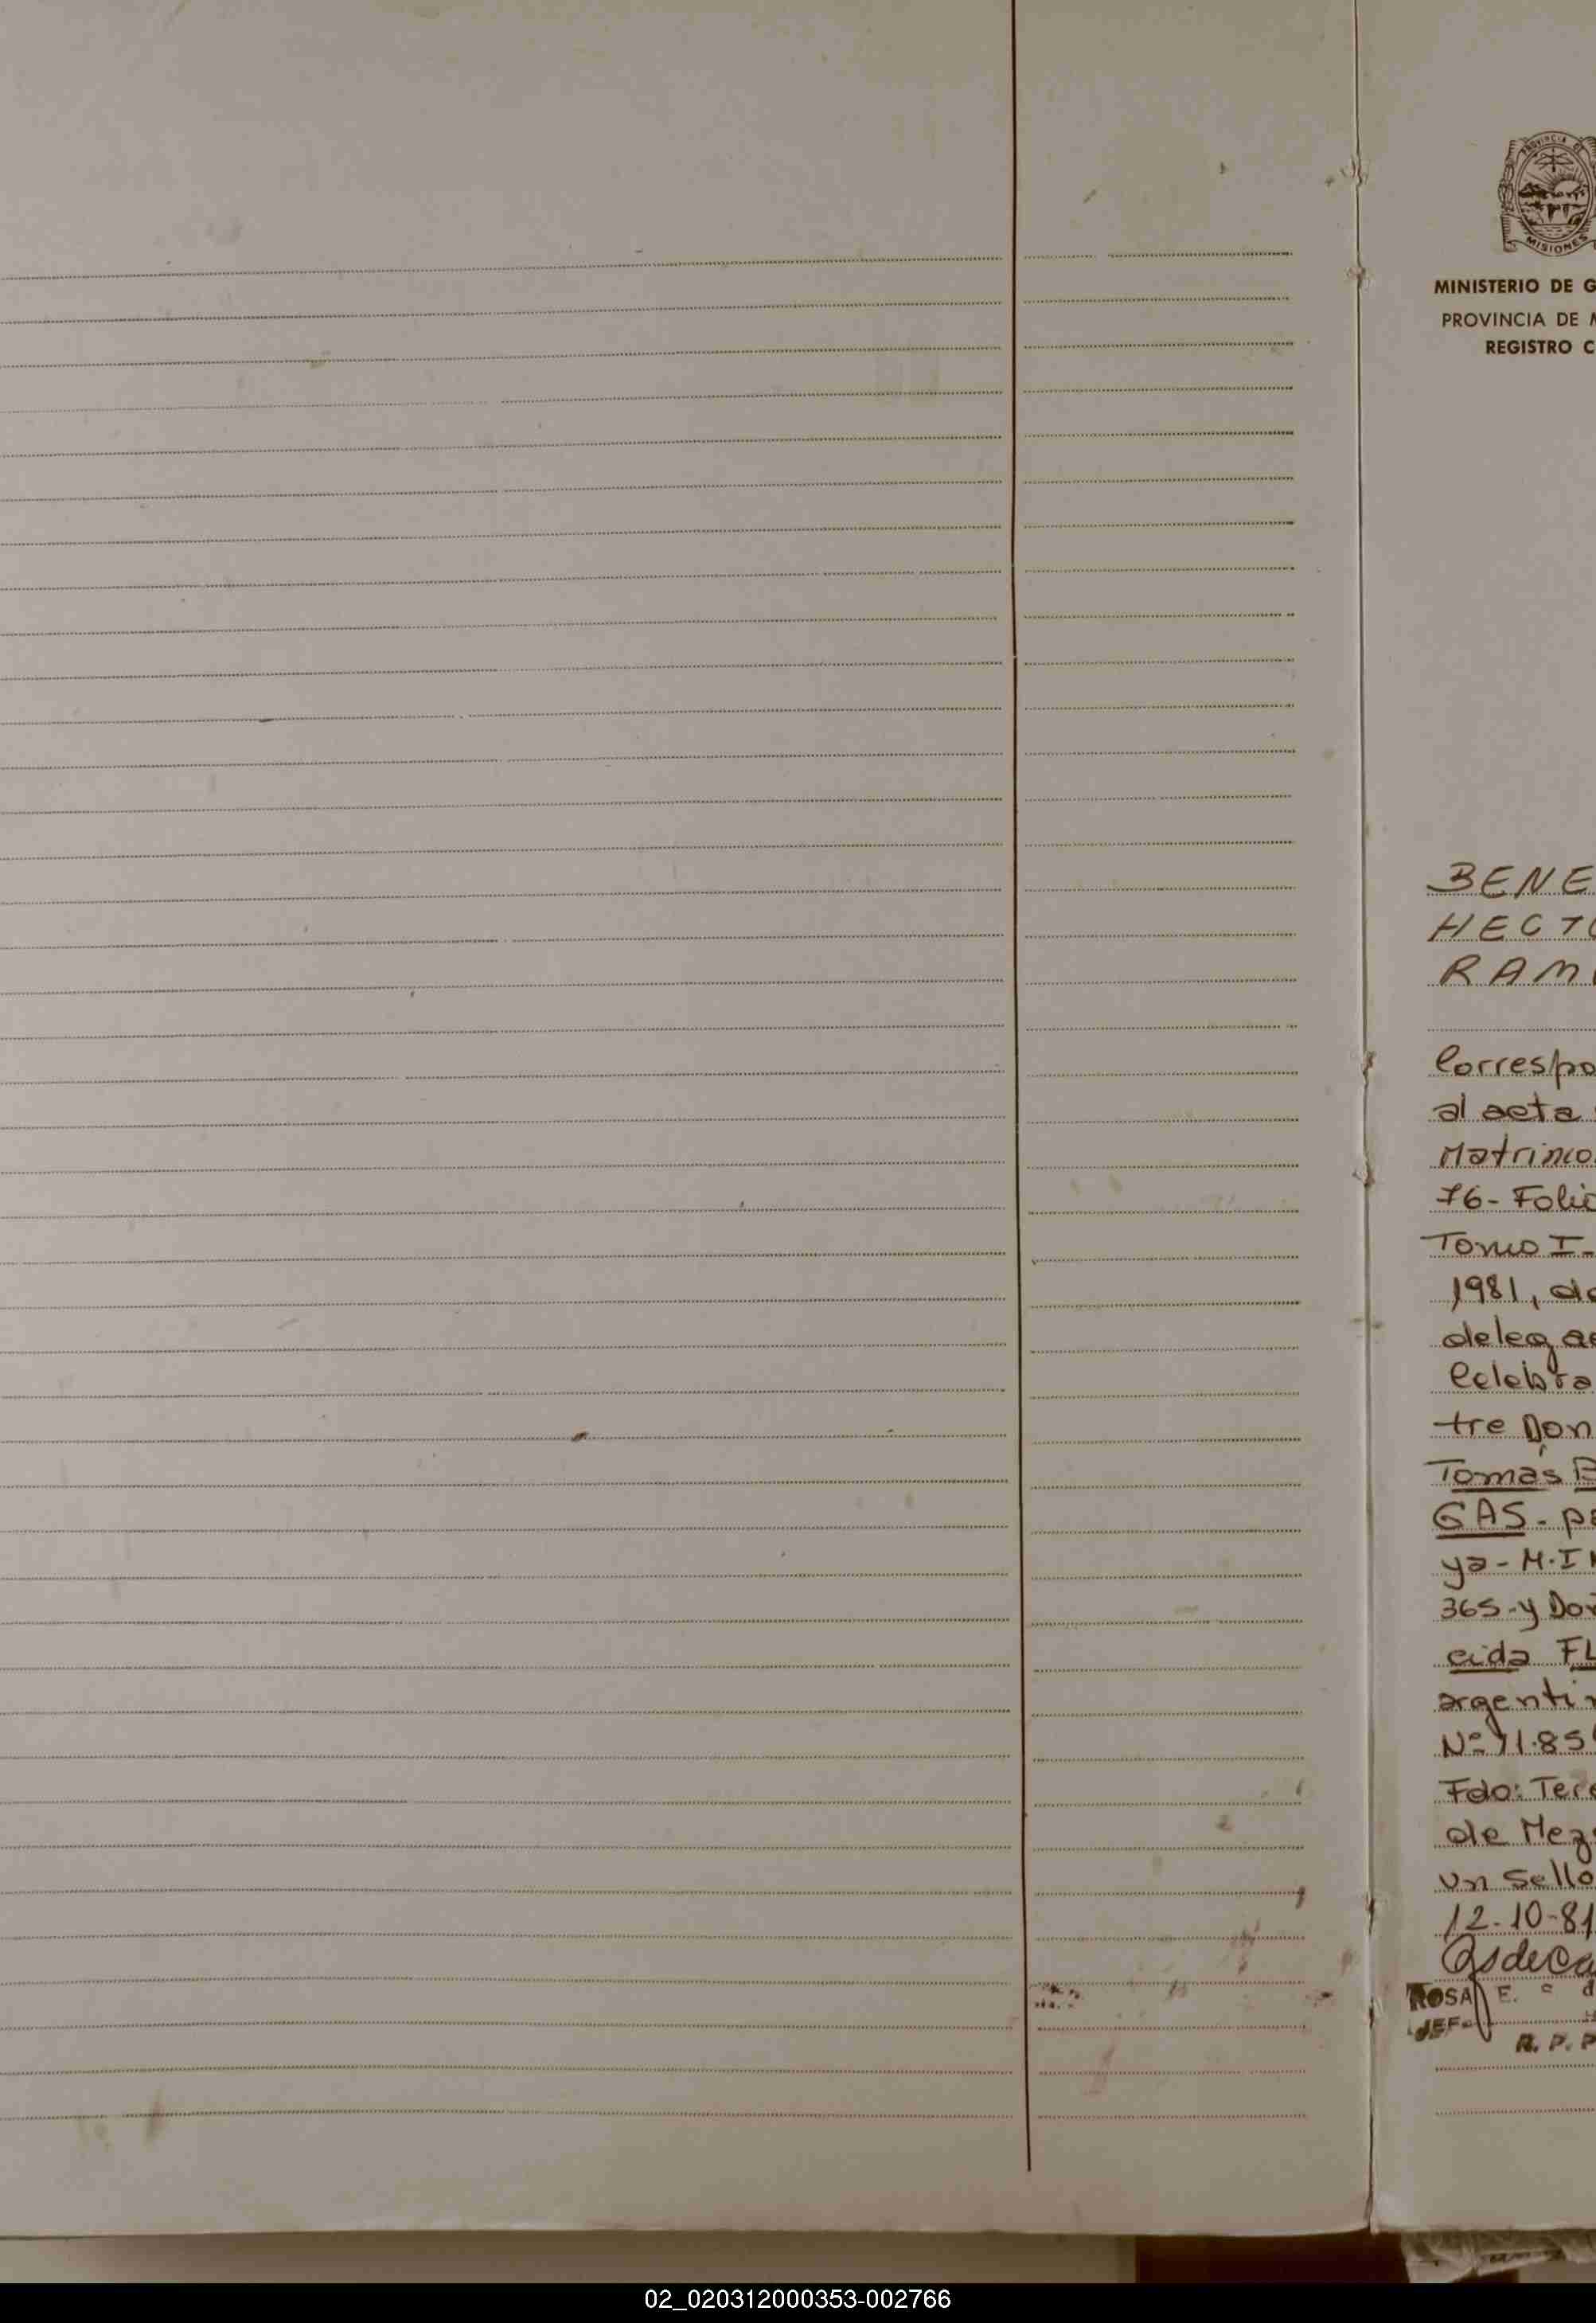 PROVINCIA DE
MISIONES
MINISTERIO DE G
PROVINCIA DE M
REGISTRO C
BENE
HECTO
RAMI
Correspo
al acta
Matrimo
76- Folio
Tomo I-
1981, de
delegac
Celebra
tre Don
Tomás B
GAS- pa
ya- M.I N
365-y Doñ
cida FL
argentin
Nº 11.85
Fdo: Tere
de Meza
un Sello
12-10-81
ROSA E. C d
JEF
R. P. P
02_020312000353-002766